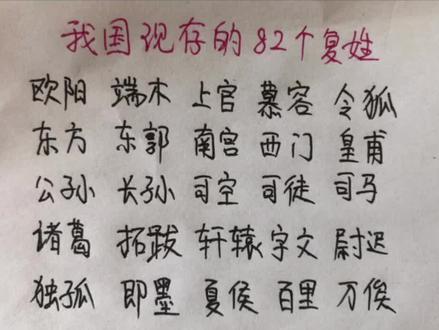 我国现存的82个复姓
欧阳 端木 上官 慕容 令狐
东方 东郭 南宫 西门 皇甫
公孙 长孙 司空 司徒 司马
诸葛 拓跋 轩辕 字文 尉迟
独孤 即墨 夏侯 百里 万俟